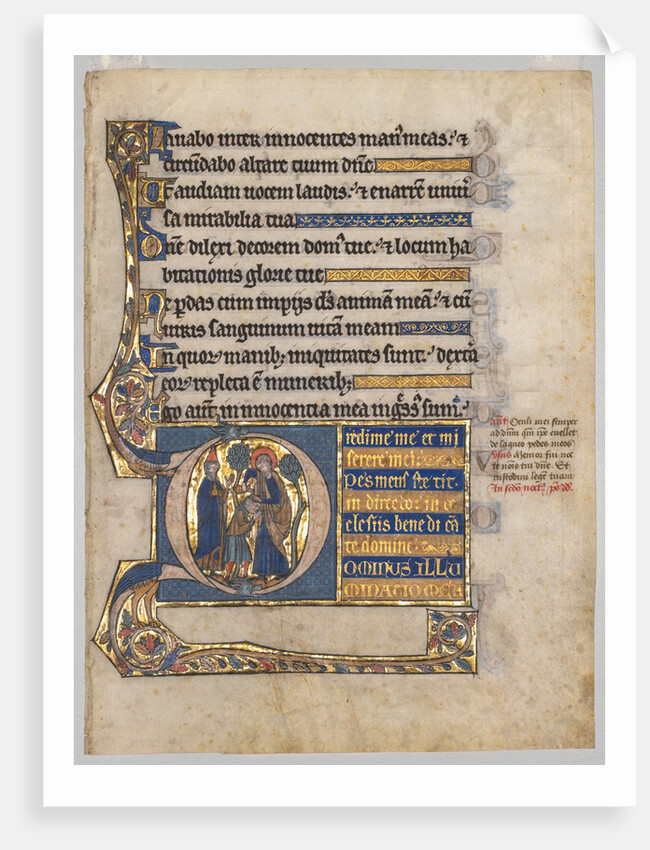 Lauabo inter innocentes manꝰ meas. ⁊
circũdabo altare tuum dñe
Vt audiam uocem laudis. ⁊ enarrē uniuꝰ
sa mirabilia tua
Dñe dilexi decorem domꝰ tue. ⁊ locum ha
bitationis glorie tue
Ne ꝑdas cum impijs ds̄ animā meā. ⁊ cū
uiris sanguinum uitā meam
In quoꝝ manibꝫ iniquitates sunt. dextͣa
eoꝝ repleta ē muneribꝫ
Ego aut̄ in innocentia mea ingͤssꝰ sum.
redime me et mi
serere mei
Pes meus ste tit
in directo: in ec
clesiis bene di cā
te domine
DOMINUS ILLU
MINATIO MEA
ant̄. Oculi mei semper
ad dñm qm̄ ipe euellet
de laqueo pedes meos
Vsus Memor fui noc
te nōis tui dñe. Et
custodiui legē tuam
In scdō noct̄.